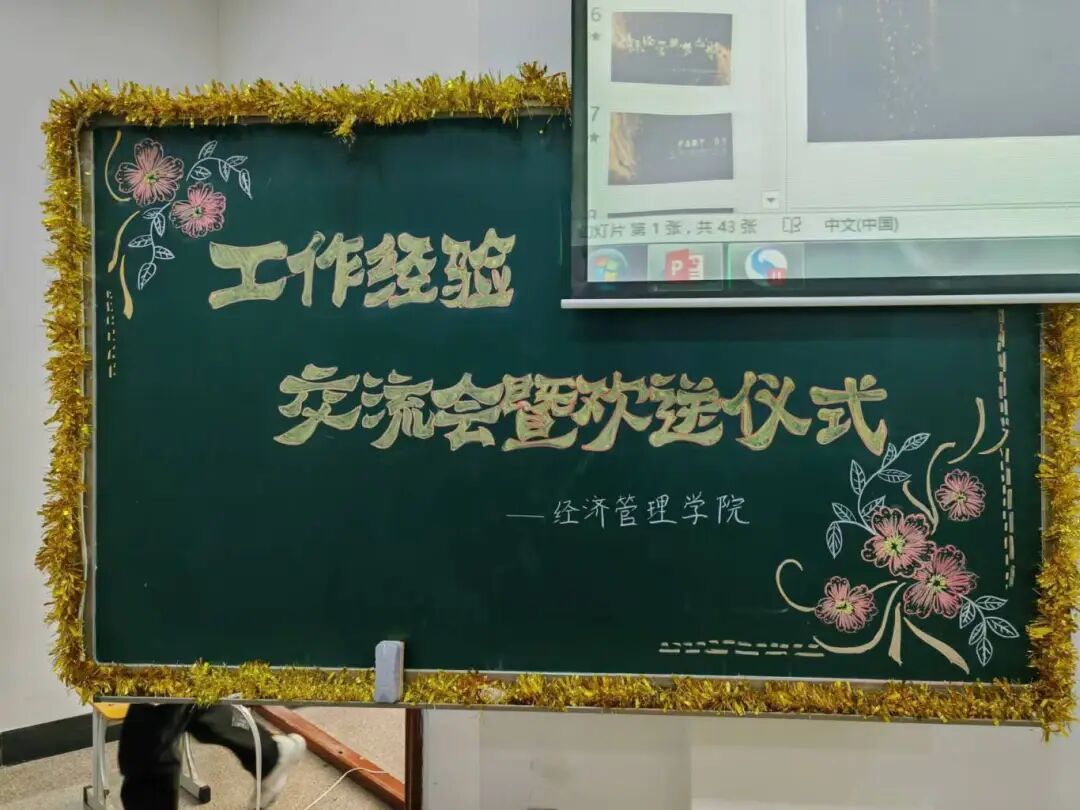 6
7
PART 03
灯片 第 1 张，共 43 张 中文(中国)
工作经验
交流会暨欢送仪式
—经济管理学院